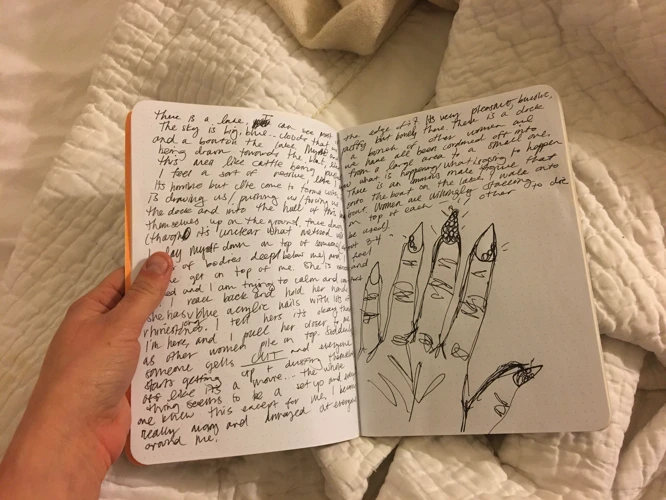 there is a lake, I can see most
The sky is big, blue... clouds that
and a boat on the lake. Myself and
being drawn towards the boat, like
this area like cattle being
I feel a sort of passive, like I
Its horrible but I've come to terms with
is drawing us / pushing us / forcing us
the dock and into the hull of this
themselves up on the ground, three deep
(though it's unclear what
lay myself down on top of
of bodies deep below me) and
get on top of me. She is
and I am trying to calm and
reach back and hold her hand
she has blue acrylic nails with lots of
rhinestones. I tell hers its okay that
I'm here, and I pull her closer to me
as other women pile on top. Suddenly
someone yells CUT and everyone
starts getting up + dusting themselves
off like it's a movie... the whole
thing seems to be a set up and every
one knew this except for me, I become
really angry and annoyed at everyone
around me.
the edge of it. Its very pleasant, bucolic,
pretty but lonely there. There is a dock
a bunch of other women and
we have all been cordoned off into
from a large area to a small one,
what is happening, what is going to happen.
There is an ominous male figure that
onto the boat on the lake, I walk onto
boat. Women are willingly stacking
on top of each other to die
be used).
3-4
feel
and